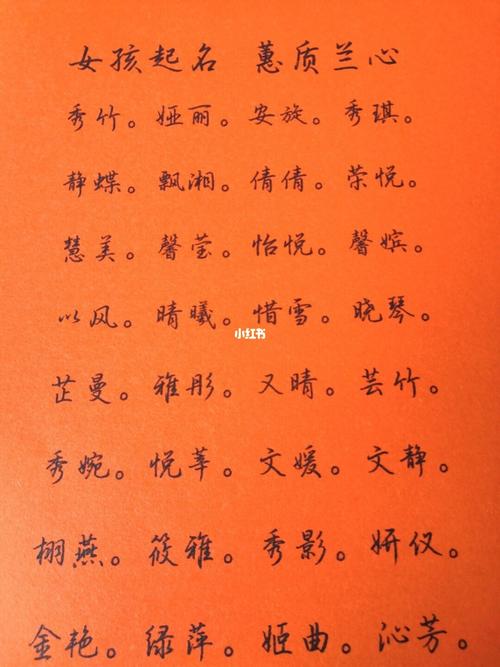 女孩起名 蕙质兰心
秀竹。娅丽。安旋。秀琪。
静蝶。飘湘。倩倩。荣悦。
慧美。馨莹。怡悦。馨嫔。
以风。晴曦。惜雪。晓琴。
小红书
芷曼。雅彤。又晴。芸竹。
秀婉。悦莘。文媛。文静。
栩燕。筱雅。秀影。妍仪。
金艳。绿萍。姬曲。沁芳。